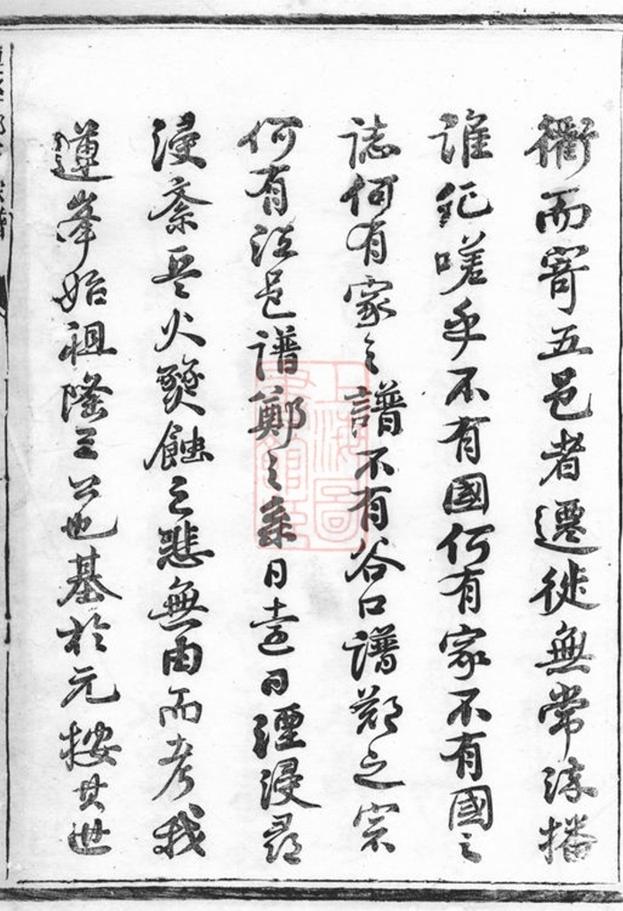 衢而寄五邑者遷徙無常流播
誰死嗟乎不有國何有家不有國之
誌何有家之譜不有谷口譜鄭之宗
何有從邑譜鄭之系日遠日湮浸尋
浸紊兵火燹蝕之悲無由而考我
蓮峯始祖隆三公也基於元按其世